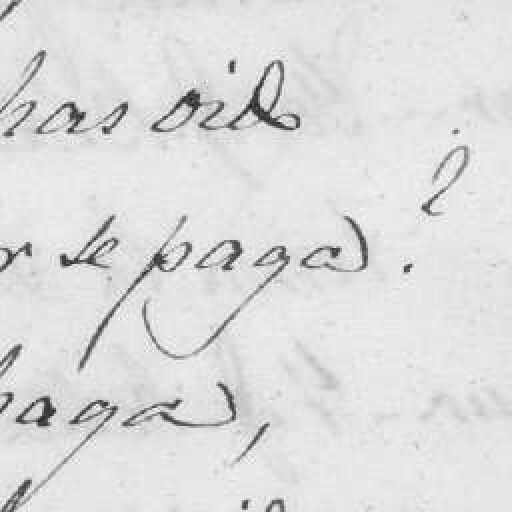 has oido
?
r se paga.
paga,